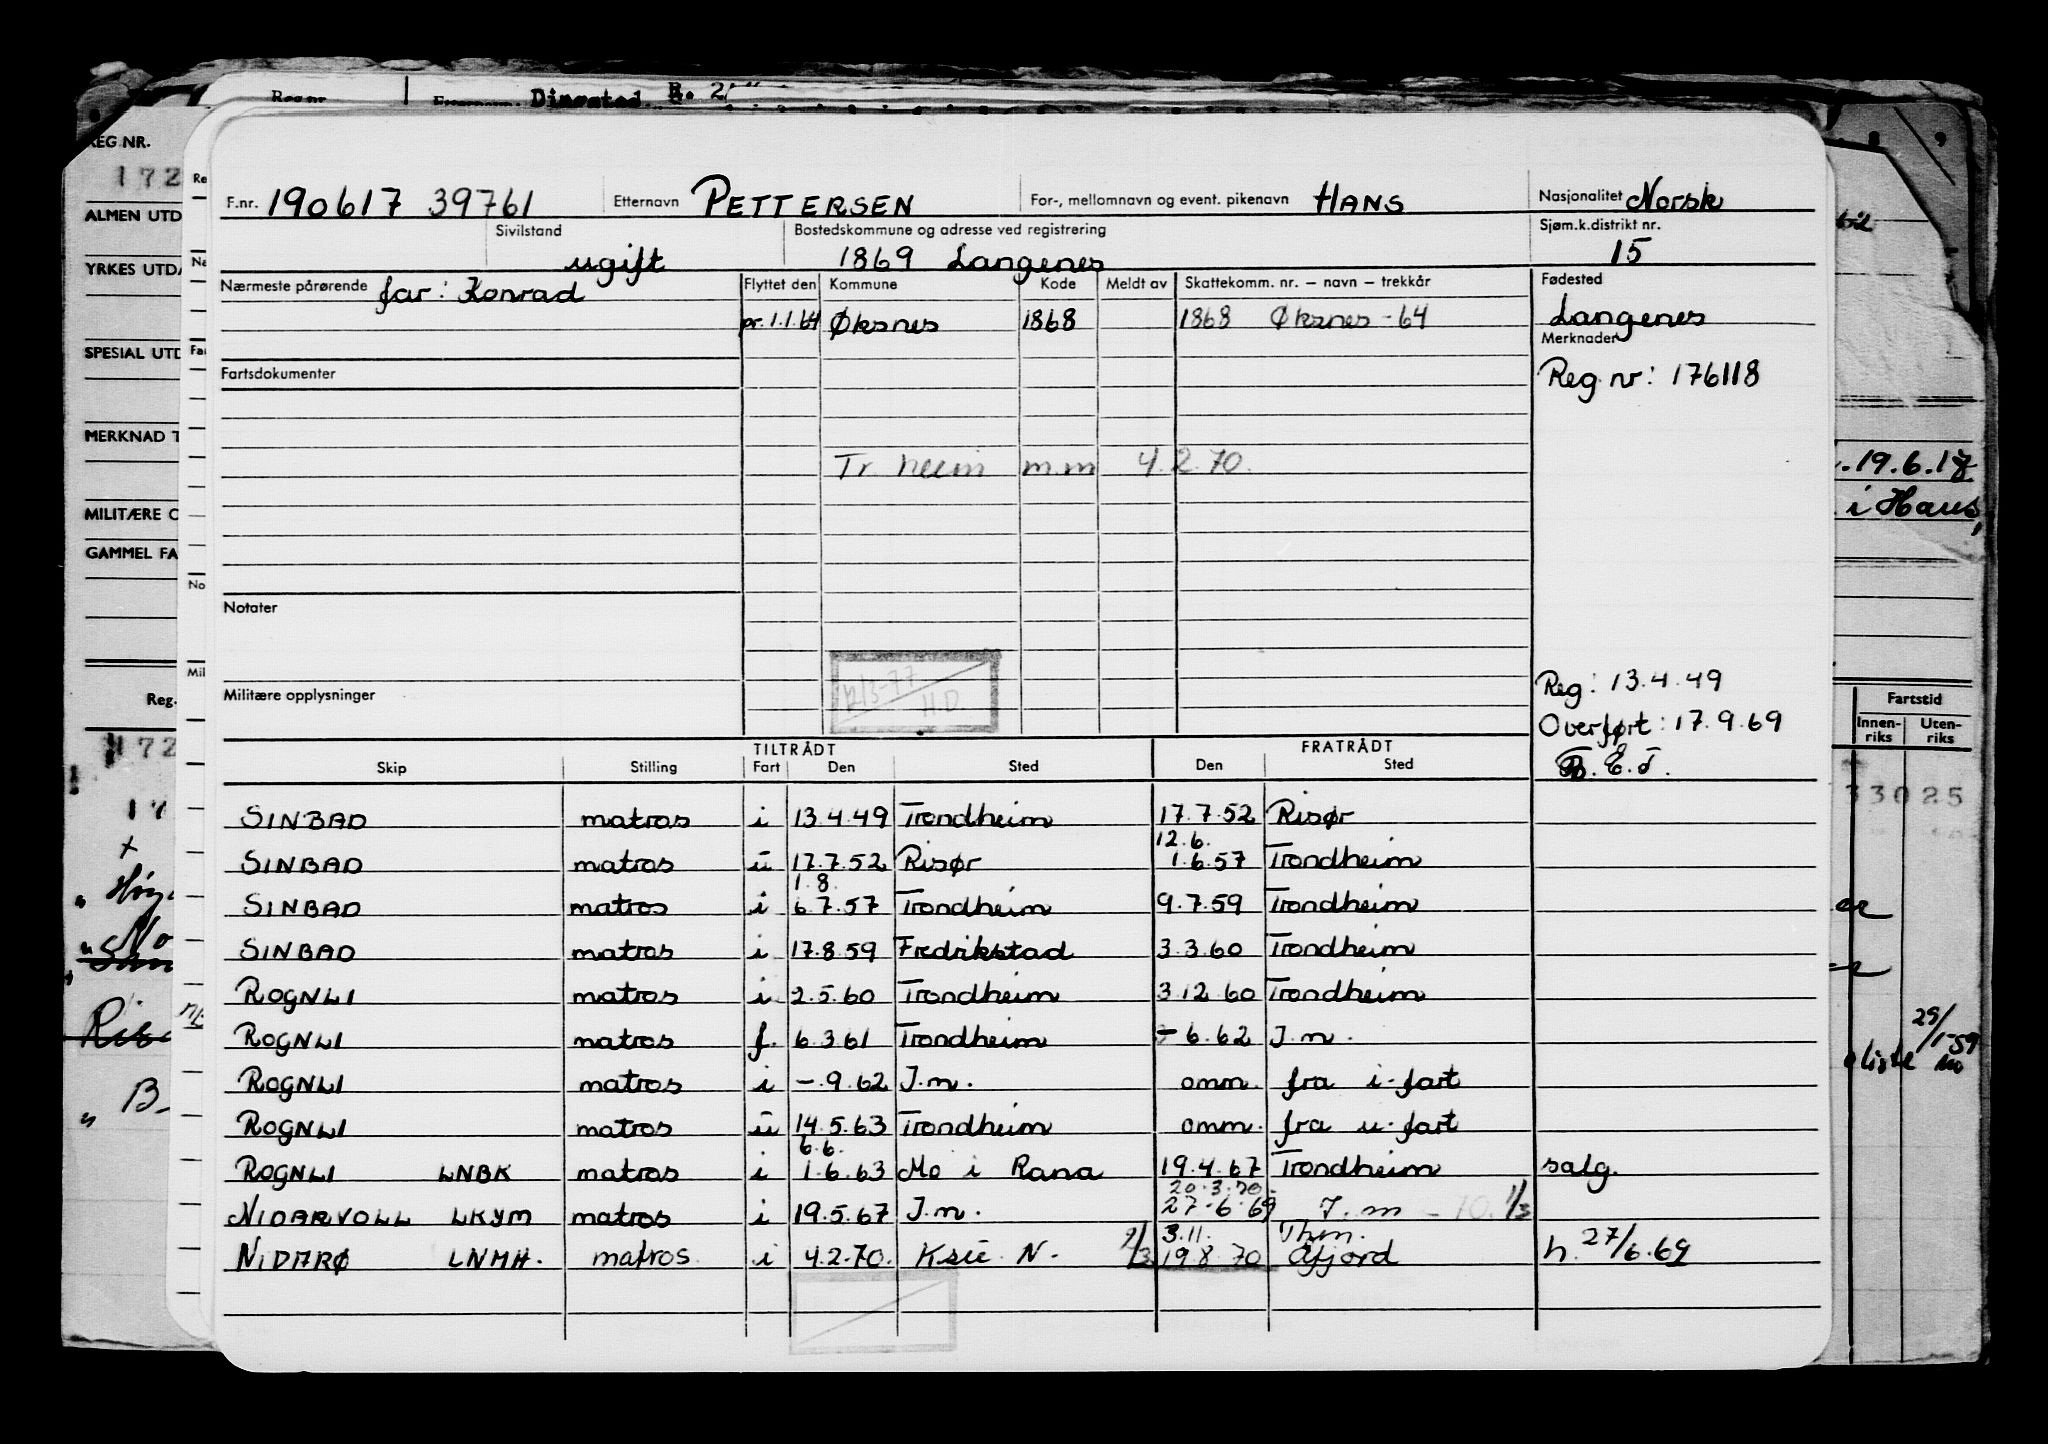 Reg.nr.
Dingstad
REG NR.
172
ALMEN UTD
YRKES UTDA
SPESIAL UTD
MERKNAD T
MILITÆRE O
GAMMEL FA
Reg.
172
F.nr. 190617 39761 Etternavn PETTERSEN For-, mellomnavn og event. pikenavn HANS Nasjonalitet Norsk
Sivilstand ugift Bostedskommune og adresse ved registrering 1869 Langenes Sjøm.k.distrikt nr. 15
Nærmeste pårørende far: Konrad Flyttet den Kommune Kode Meldt av Skattekomm. nr. – navn – trekkår Fødested
pr. 1.1.64 Øksnes 1868 1868 Øksnes - 64 Langenes
Merknader
Fartsdokumenter Reg. nr: 176118
Tr.heim m.m 4.2.70.
19.6.17
i Haus,
Notater
12/3-77
H.D
Militære opplysninger
Reg: 13.4.49
Overført: 17.9.69
B.E.T.
Fartstid
Innen-riks Uten-riks
33025
TILTRÅDT FRATRÅDT
Skip Stilling Fart Den Sted Den Sted
SINBAD matros i 13.4.49 Trondheim 17.7.52 Risør
12.6.
SINBAD matros u 17.7.52 Risør 1.6.57 Trondheim
1.8.
SINBAD matros i 6.7.57 Trondheim 9.7.59 Trondheim
SINBAD matros i 17.8.59 Fredrikstad 3.3.60 Trondheim
ROGNLI matros i 2.5.60 Trondheim 3.12.60 Trondheim
ROGNLI matros f. 6.3.61 Trondheim - 6.62 J.n.
ROGNLI matros i -.9.62 J.n. omm. fra i-fart
ROGNLI matros u 14.5.63 Trondheim omm. fra u-fart
6.6.
ROGNLI LNBK matros i 1.6.63 Mo i Rana 19.4.67 Trondheim salg.
20.3.70.
NIDARVOLL LKYM matros i 19.5.67 J.n. 27.6.69 J.m - 70. 1/3
3.11. Thm.
NIDARØ LNMH. matros i 4.2.70. Ksu N. 2/3 19.8.70 Åfjord h. 27/6.69